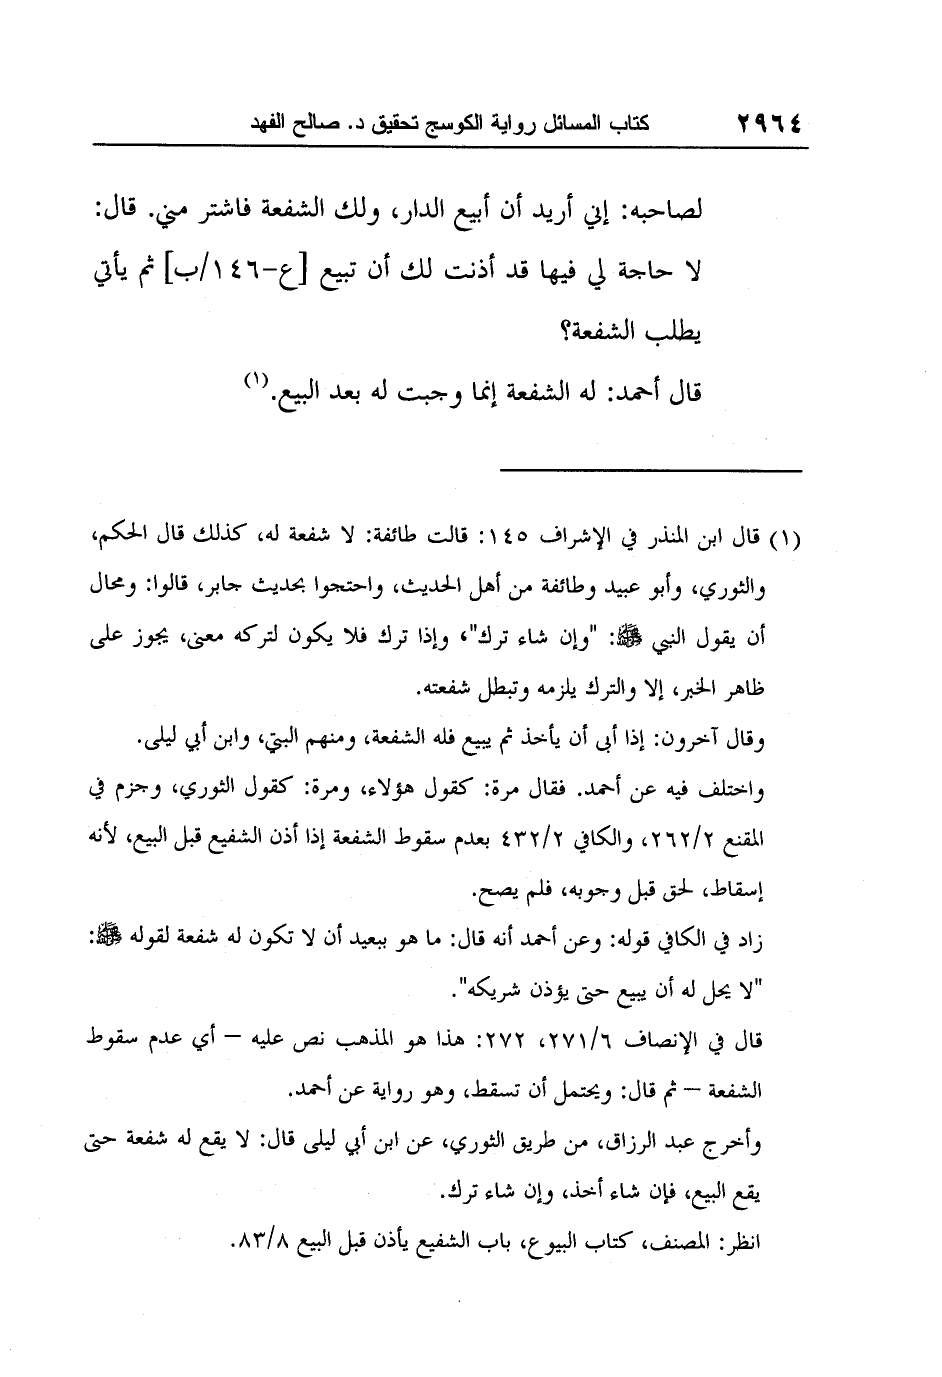 ٢٩٦٤ كتاب المسائل رواية الكوسج تحقيق د. صالح الفهد
لصاحبه: إني أريد أن أبيع الدار، ولك الشفعة فاشتر مني. قال:
لا حاجة لي فيها قد أذنت لك أن تبيع [ع-١٤٦/ب] ثم يأتي
يطلب الشفعة؟
قال أحمد: له الشفعة إنما وجبت له بعد البيع.(١)
(١) قال ابن المنذر في الإشراف ١٤٥: قالت طائفة: لا شفعة له، كذلك قال الحكم،
والثوري، وأبو عبيد وطائفة من أهل الحديث، واحتجوا بحديث جابر، قالوا: ومحال
أن يقول النبي ﷺ: "وإن شاء ترك"، وإذا ترك فلا يكون لتركه معنى، يجوز على
ظاهر الخبر، إلا والترك يلزمه وتبطل شفعته.
وقال آخرون: إذا أبى أن يأخذ ثم يبيع فله الشفعة، ومنهم البتي، وابن أبي ليلى.
واختلف فيه عن أحمد. فقال مرة: كقول هؤلاء، ومرة: كقول الثوري، وجزم في
المقنع ٢٦٢/٢، والكافي ٤٣٢/٢ بعدم سقوط الشفعة إذا أذن الشفيع قبل البيع، لأنه
إسقاط، لحق قبل وجوبه، فلم يصح.
زاد في الكافي قوله: وعن أحمد أنه قال: ما هو ببعيد أن لا تكون له شفعة لقوله ﷺ:
"لا يحل له أن يبيع حتى يؤذن شريكه".
قال في الإنصاف ٢٧١/٦، ٢٧٢: هذا هو المذهب نص عليه – أي عدم سقوط
الشفعة – ثم قال: ويحتمل أن تسقط، وهو رواية عن أحمد.
وأخرج عبد الرزاق، من طريق الثوري، عن ابن أبي ليلى قال: لا يقع له شفعة حتى
يقع البيع، فإن شاء أخذ، وإن شاء ترك.
انظر: المصنف، كتاب البيوع، باب الشفيع يأذن قبل البيع ٨٣/٨.